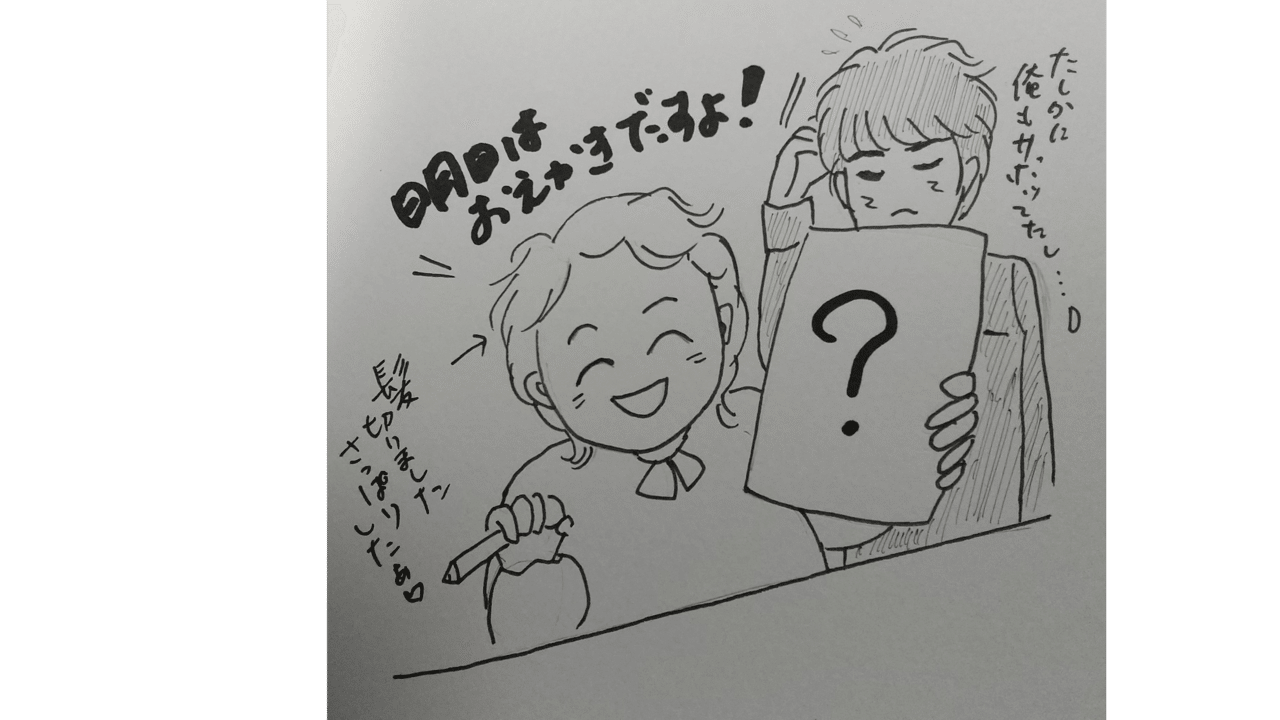 明日は
おえかきですよ!
たしかに
俺もサボってたし…
?
髪切りました
さっぱりしたぁ♡